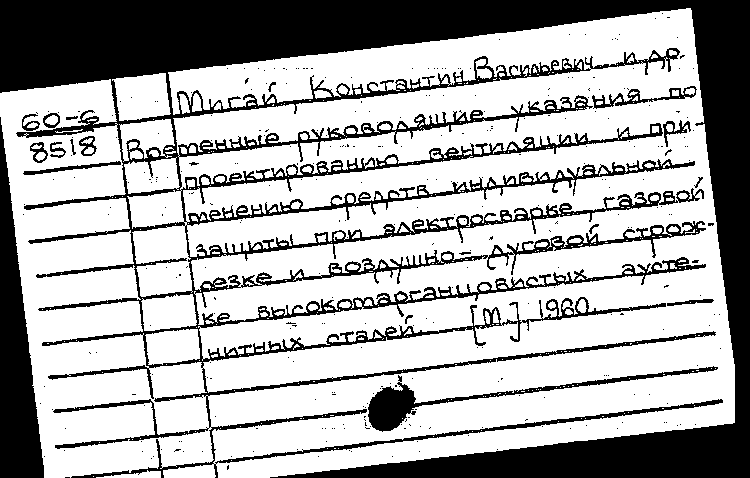 Мигай, Константин Васильевич и др
60-6
8518
Временные руководящие указания по
проектированию вентиляции и при-
менению средств индивидуальной
защиты при электросварке, газовой
резке и воздушно-дуговой строж-
ке высокомарганцовистых аусте-
нитных сталей. [М], 1960.